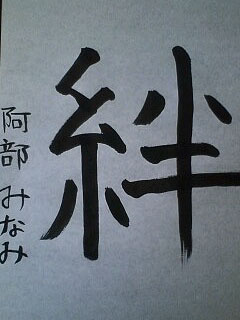 絆
阿部 みなみ